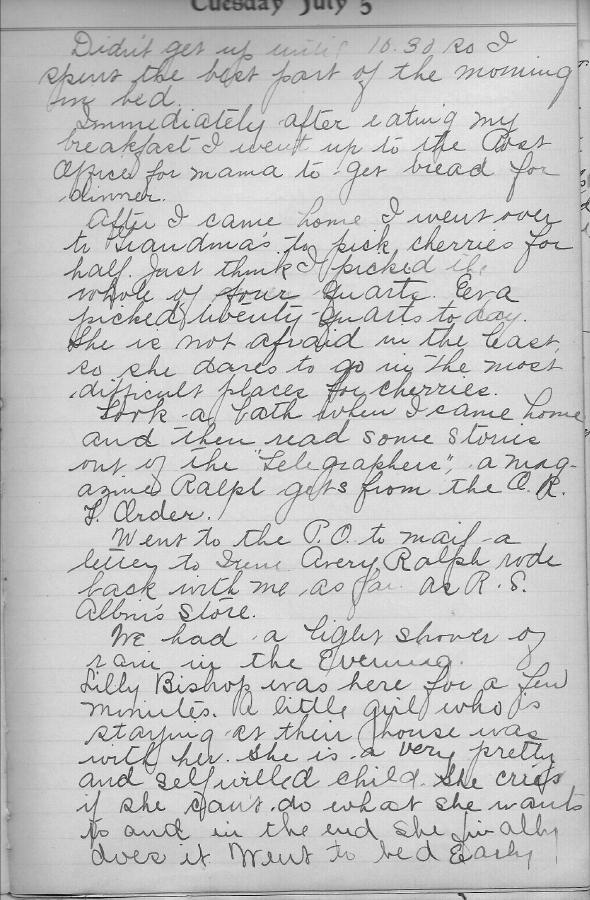 Tuesday July 5
Didn't get up until 10.30 so I
spent the best part of the morning
in bed.
Immediately after eating my
breakfast I went up to the Post
Office for mama to get bread for
dinner.
After I came home I went over
to Grandma's to pick cherries for
half. Just think I picked the
whole of four quarts. Eva
picked twenty quarts today.
She is not afraid in the least,
so she dares to go in the most
difficult places for cherries.
Took a bath when I came home
and then read some stories
out of the "Telegraphers", a mag-
azine Ralph gets from the O. R.
T. Order.
Went to the P.O. to mail a
letter to Irene Avery Ralph rode
back with me as far as R. S.
store.
We had a light shower of
rain in the evening.
Lilly Bishop was here for a few
minutes. A little girl who is
staying at their house was
with her. She is a very pretty
and selfwilled child. She cries
if she can't do what she wants
to and in the end she finally
does it Went to bed Early